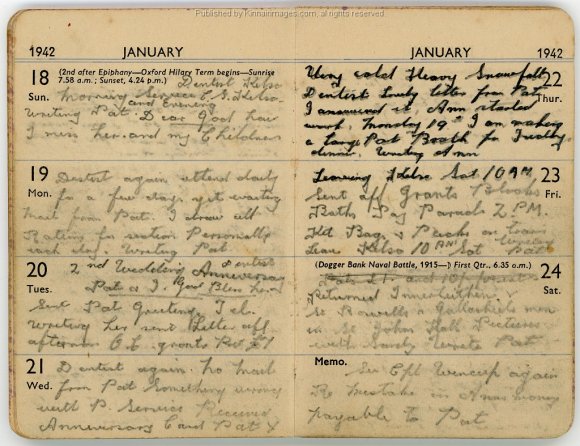 Published by Kinnairdimages.com, all rights reserved
1942 JANUARY
18 (2nd after Epiphany—Oxford Hilary Term begins—Sunrise
7.58 a.m.; Sunset, 4.24 p.m.) Dentist Kelso
Sun. Morning Service C. S. Kelso
and Evening
Writing Pat. Dear God how
I miss her and my Children
19 Dentist again attend daily
Mon. for a few days yet waiting
mail from Pat. I draw all
Rations for section Personally
each day. Writing Pat
20 2nd Wedding Anniversary
Dentist
Tues. Pat & I. God Bless her
Sent Pat Greeting Tele.
Writing her sent letter off
afternoon
21 Dentist again. No mail
Wed. from Pat Something wrong
with P. Service Received
Anniversary Card Pat X
JANUARY 1942
22 Very cold Heavy Snowfall
Thur. Dentist Lovely letter from Pat
I answered it. Ann started
work Monday 19th I am making
a large Pat Broth for Friday
dinner. Writing
23 Leaving Kelso Sat 10 AM
Fri. Sent off Grants Blooks
Baths Pay Parade 2 P.M.
Kit Bags & Packs on
Leave Kelso 10 AM Sat Pat
24 (Dogger Bank Naval Battle, 1915—) First Qtr., 6.35 a.m.)
Sat. Returned Innerleithen.
St Boswells & Galashiels
in St John Hall Pictures
with Sandy Wrote Pat
Memo.
See Cpl again
Re mistake in money
payable to Pat